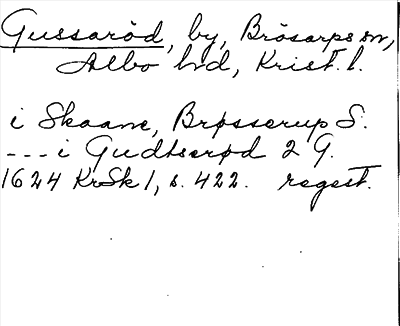 Gussaröd, by, Brösarps sn,
Albo hd, Krist. l.
i Skaane, Brøsserup S.
--- i Gudtserød 2 G.
1624 KrSk 1, s. 422. regest.